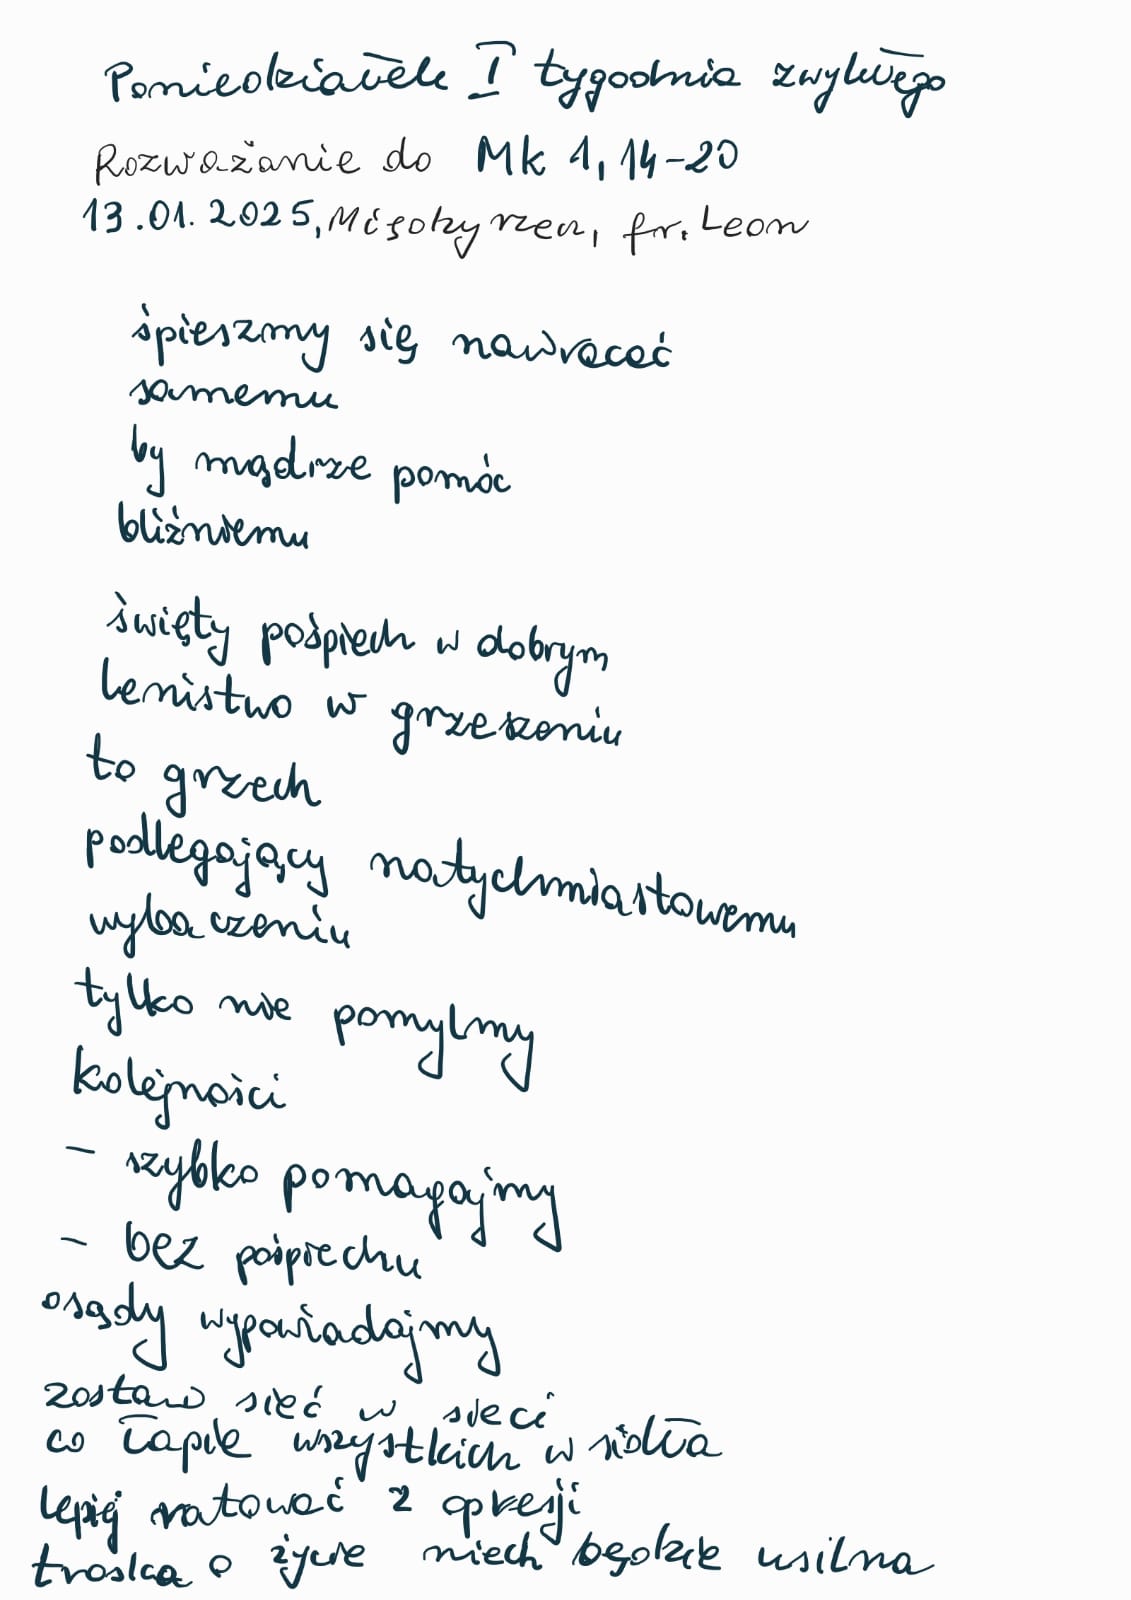 Poniedziałek I tygodnia zwykłego
Rozważanie do Mk 1, 14-20
13.01.2025, Międzyrzecz, fr. Leon
śpieszmy się nawracać
samemu
by mądrze pomóc
bliźniemu
święty pośpiech w dobrym
lenistwo w grzeszeniu
to grzech
podlegający natychmiastowemu
wybaczeniu
tylko nie pomylmy
kolejności
- szybko pomagajmy
- bez pośpiechu
osądy wypowiadajmy
zostaw sieć w sieci
co łapie wszystkich w sidła
lepiej ratować z opresji
troska o życie niech będzie usilna